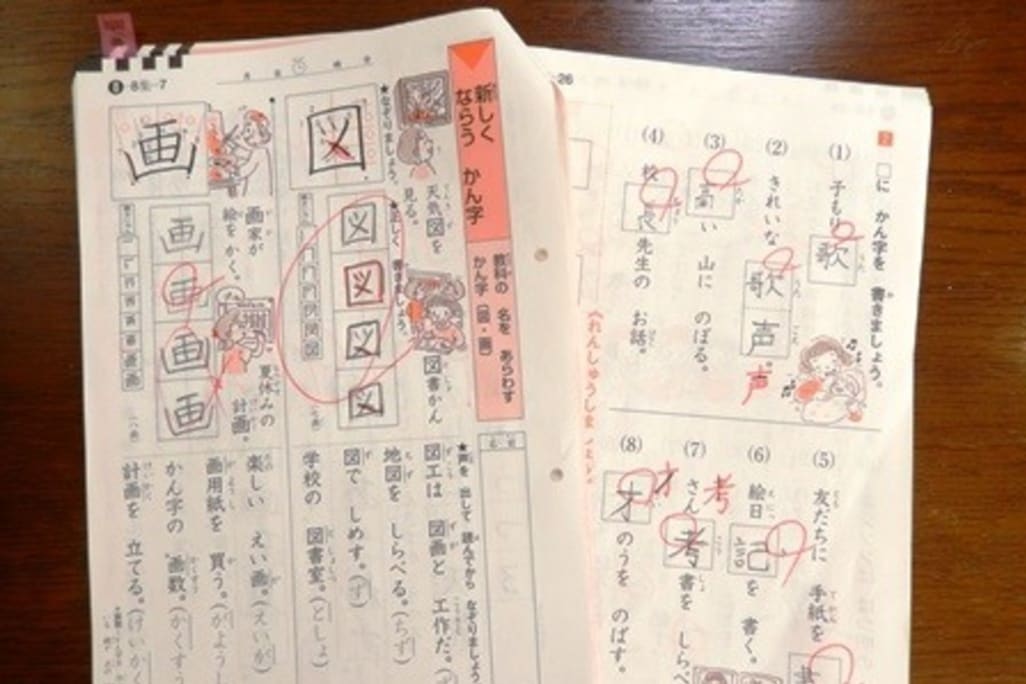 8 8生-7
新しく
ならう かん字
教科の 名を あらわす
かん字〔図・画〕
★なぞりましょう。
天気図を
見る。
図
★正しく 書きましょう。
図
図
図
図
図書かん
画
画家が
絵を かく。
画
画
画
画
夏休みの
計画。
★声を 出して 読んでから なぞりましょう
図工は 図画と 工作だ。
地図を しらべる。(ちず)
図で しめす。(ず)
学校の 図書室。(としょ)
楽しい えい画。(えいが)
画用紙を 買う。(がようし
かん字の 画数。(かくすう
計画を 立てる。(けいかく
26
2 □に かん字を 書きましょう。
(1) 子もり歌
(2) きれいな 歌声。
声
(3) 高い 山に のぼる。
(4) 校長先生の お話。
(5) 友だちに 手紙を
(6) 絵日記を 書く。
(7) さん考書を しらべ
考
(8) 才のうを のばす。
才